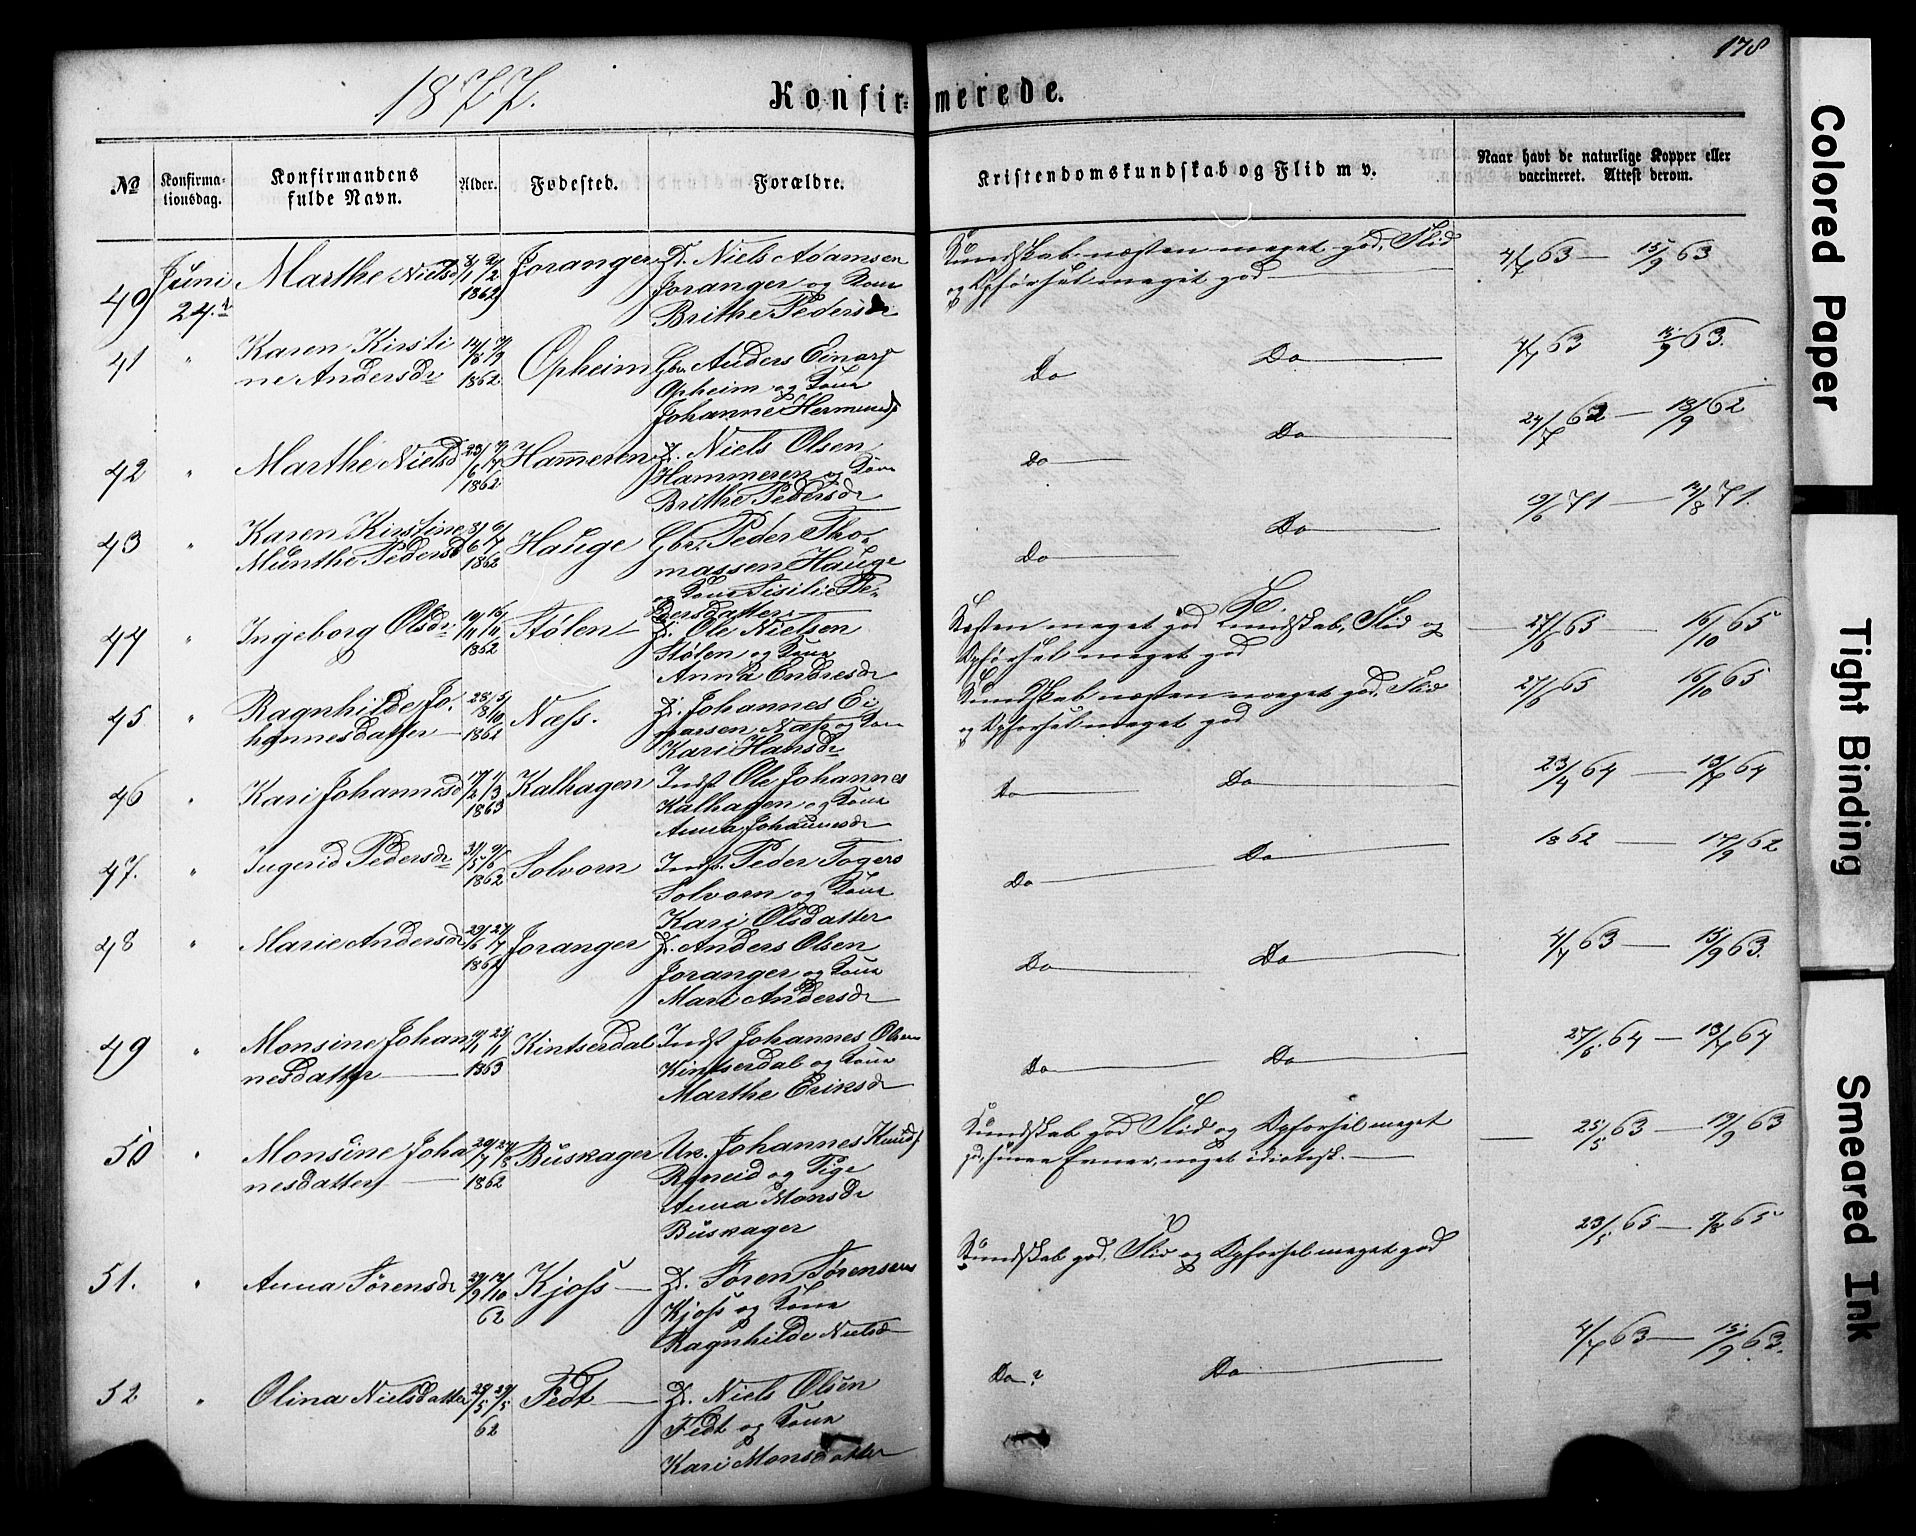 178
1877.
Konfirmerede.
№
Konfirmationsdag.
Konfirmandens fulde Navn.
Alder.
Fødested.
Forældre.
Kristendomskundskab og Flid m v.
Naar havt de naturlige Kopper eller vaccineret. Attest derom.
40 Juni 24. Marthe Nielsd 1862 Joranger Niels Adamsen
Joranger og Kone
Brithe Pedersdr
Kundskab næsten meget god, Flid
og Opførsel meget god
4/7 63 — 15/9 63
41 " Karen Kirsti
ne Andersdr 1862 Opheim Gbr. Anders Einars
Opheim og Kone
Johanne Hermunds
Do Do
4/7 63 15/9 63.
42 " Marthe Nielsd 1862 Hameren Niels Olsen
Hammeren og Kone
Brithe Pedersdr
Do Do
24/7 62 — 13/9 62
43 " Karen Kirstine
Munthe Pedersd 1862 Hauge Gbr. Peder Tho-
massen Hauge
og Kone Sisilie Pe-
dersdatter
Do Do
71 — 71.
44 " Ingeborg Olsdr 1862 Stølen Ole Nielsen
Stølen og Kone
Anna Endresdr
Næsten meget god Kundskab, Flid og
Opførsel meget god
27/6 65 — 16/10 65
45 " Ragnhilde Jo-
hannesdatter 28/8 5/10 1862 Næss. Johannes Ei
narsen Næss og Kone
Kari Hansdr
Kundskab næsten meget god, Flid
og Opførsel meget god
27/6 65 16/10 65
46 " Kari Johannesd 1863 Kalhagen Indst Ole Johannes
Kalhagen og Kone
Anna Johannesdr
Do Do
23/4 64 — 13/7 64
47. " Ingerid Pedersdr 1862 Solvorn Indst. Peder Togers
Solvorn og Kone
Kari Olsdatter
Do Do
1862 — 17/9 62
48 " Marie Andersdr 29/6 27/7 1862 Joranger Anders Olsen
Joranger og Kone
Mari Andersdr
Do Do
4/7 63 — 15/9 63.
49 " Monsine Johan
nesdatter 1863 Kintserdal Indst Johannes Olsen
Kintserdal og Kone
Marthe Eriksdr
Do Do
27/5 64 — 13/7 64
50 " Monsine Joha
nesdatter 1862 Buskager Uk. Johannes Knuds
Røneid og Pige
Anna Monsdr
Buskager
Kundskab god Flid og Opførsel meget
god, sine Evner, noget idiotisk.
25/5 63 — 19/9 63
51. " Anna Sørensdr 29/9 12/10 62 Kjoss Søren Sørensen
Kjoss og Kone
Ragnhilde Nielsd
Kundskab god, Flid og Opførsel meget god
23/5 65 — 9/8 65
52. " Olina Nielsdatter 62 Fedt Niels Olsen
Fedt og Kone
Kari Monsdatter
Do? Do
4/7 63 — 15/9 63.
Colored Paper
Tight Binding
Smeared Ink